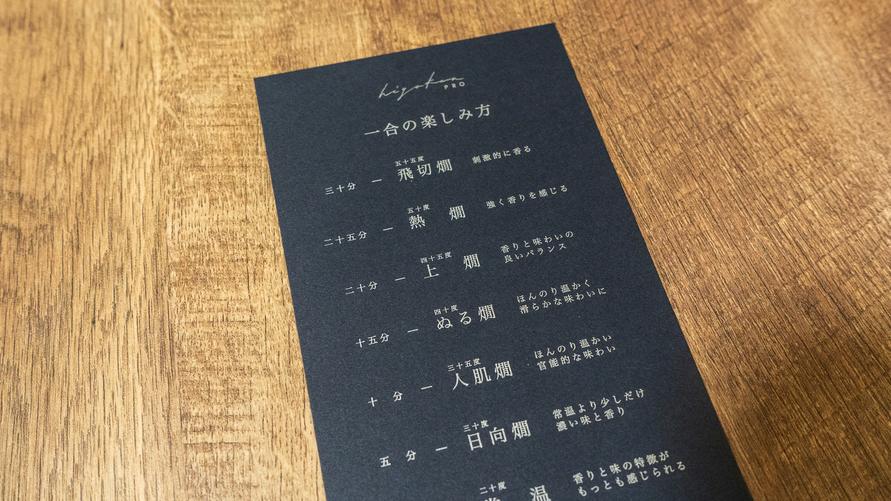 higokan
PRO
一合の楽しみ方
五十五度
三十分 ー 飛切燗 刺激的に香る
五十度
二十五分 ー 熱燗 強く香りを感じる
四十五度
二十分 ー 上燗 香りと味わいの
良いバランス
四十度
十五分 ー ぬる燗 ほんのり温かく
滑らかな味わいに
三十五度
十分 ー 人肌燗 ほんのり温かい
官能的な味わい
三十度
五分 ー 日向燗 常温より少しだけ
濃い味と香り
二十度
常温 香りと味の特徴が
もっとも感じられる